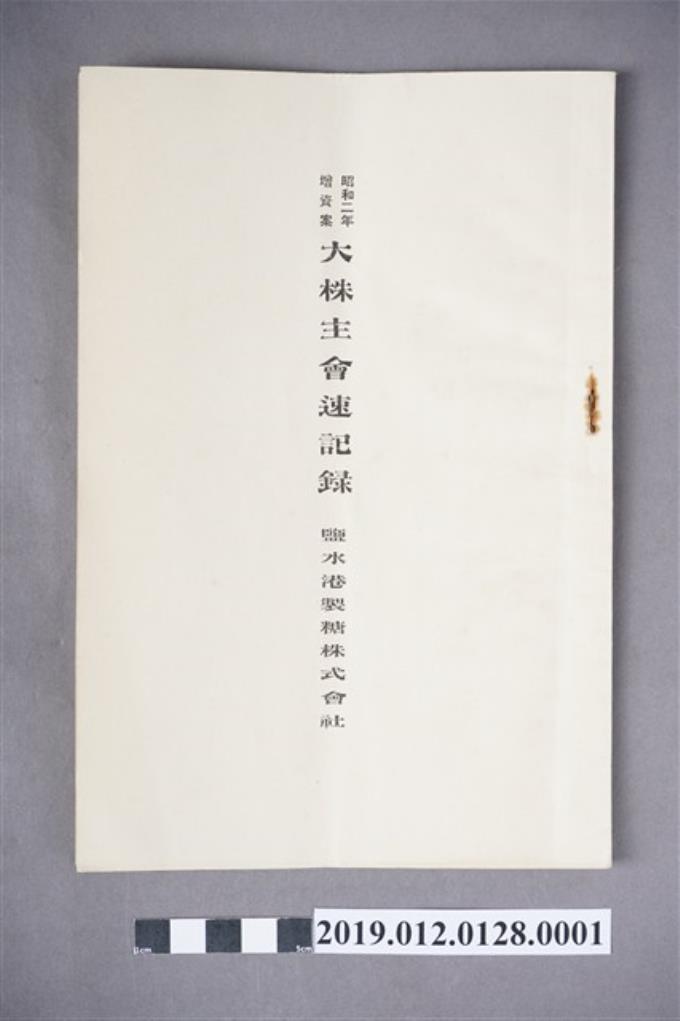 昭和二年
增資案
大株主會速記録
鹽水港製糖株式會社
1cm
5cm
2019.012.0128.0001